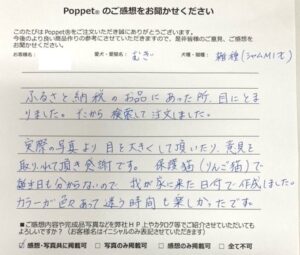 Poppet® のご感想をお聞かせください
このたびは Poppet®をご注文いただき誠にありがとうございます。
今後のより良い商品作りの参考にさせていただきますので、是非皆様のご意見、ご感想を
お聞かせください。
お客様名: 愛犬・愛猫名: むぎ 犬種・猫種: 雑種(シャムMIX)
ふるさと納税のお品にあった所、目にとま
りました。だから検索して注文しました。
実際の写真より目を大きくして頂いたり、意見を
取り入れて頂き感謝です。保護猫(りんご猫)で
誕生日も分からないので我が家に来た日付で作成しました。
カラーが色々あって迷う時間も楽しかったです。
■ご感想内容や完成品写真などを弊社HP上やカタログ等でご紹介させていただいても
よろしいですか?(お客様名はイニシャルのみ表記させていただきます)
☑感想・写真共に掲載可 □写真のみ掲載可 □感想のみ掲載可 □全て不可